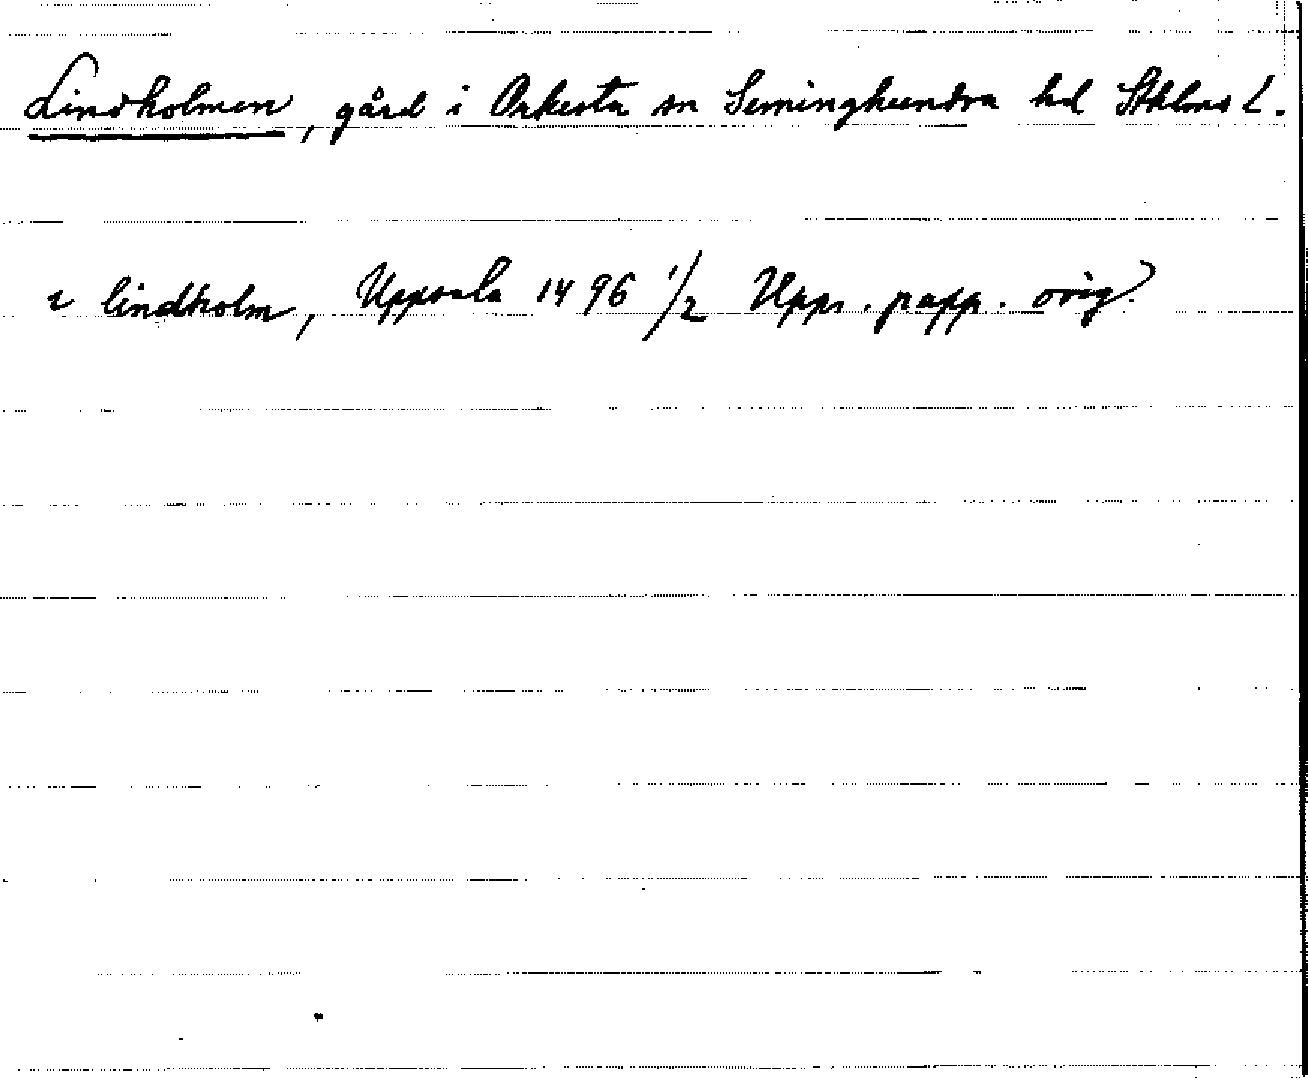 Lindholmen, gård i Orkesta sn Seminghundra hd Sthlms L.
i lindholm, Uppsala 1496 1/2 Upps. papp. orig.